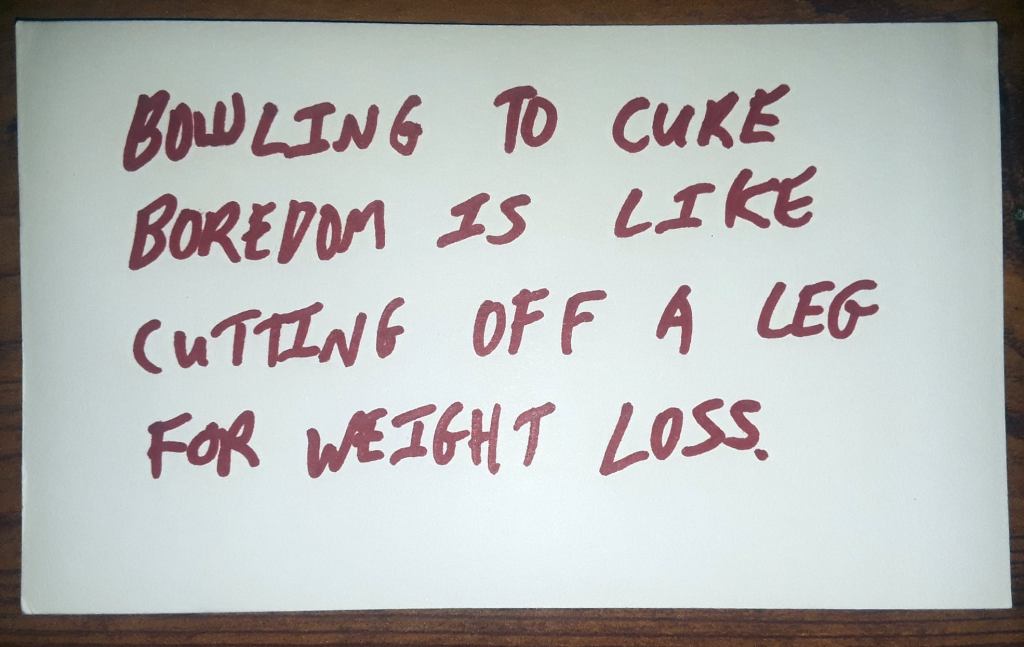 BOWLING TO CURE
BOREDOM IS LIKE
CUTTING OFF A LEG
FOR WEIGHT LOSS.